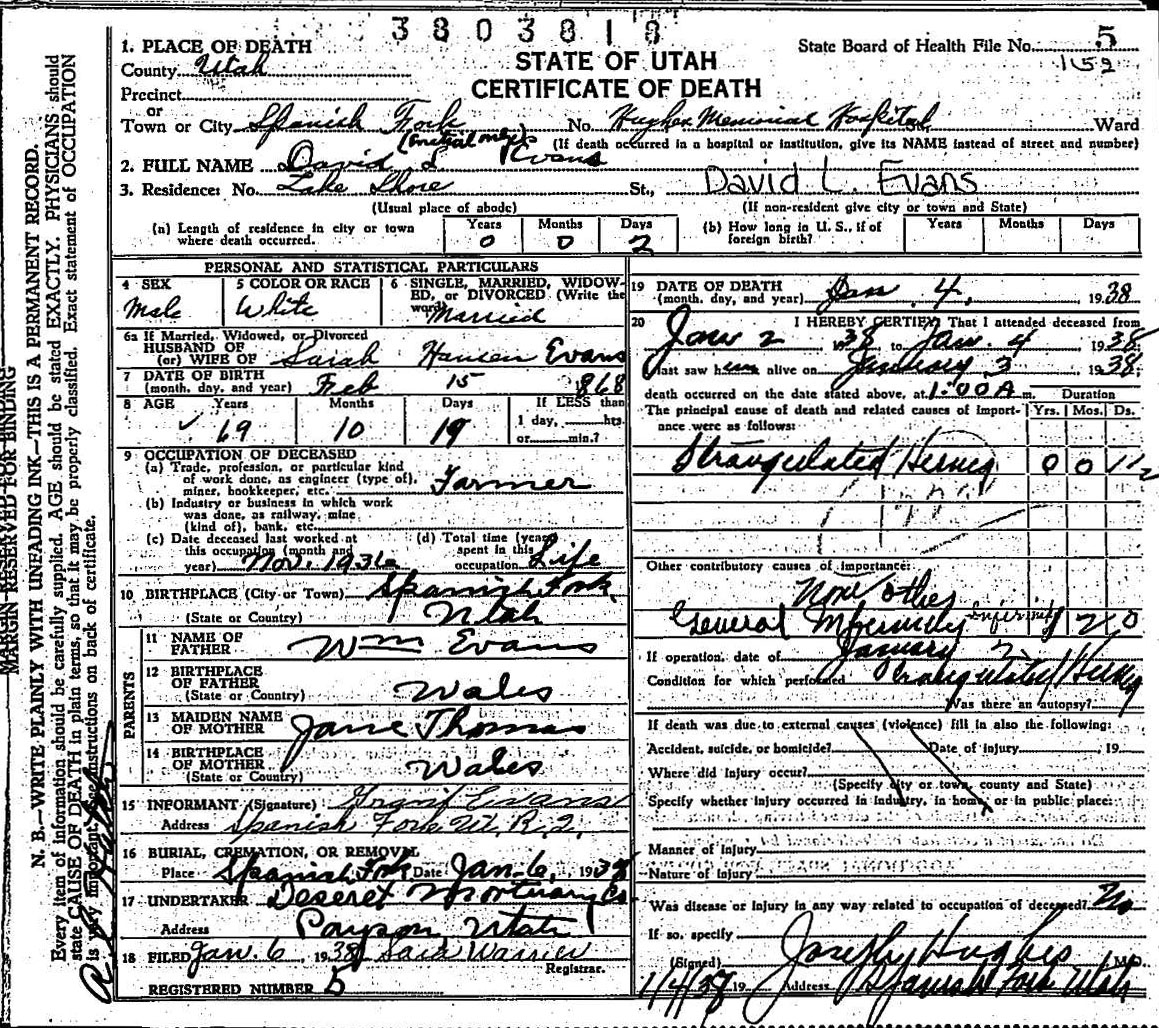 3803818
1. PLACE OF DEATH
State Board of Health File No. 5
County Utah
STATE OF UTAH
152
Precinct
CERTIFICATE OF DEATH
or
Town or City Spanish Fork No. Hughes Memorial Hospital Ward
(Initial only)
(If death occurred in a hospital or institution, give its NAME instead of street and number)
2. FULL NAME David L Evans
3. Residence: No. Lake Shore St., David L. Evans
(Usual place of abode) (If non-resident give city or town and State)
(a) Length of residence in city or town where death occurred. Years 0 Months 0 Days 2
(b) How long in U. S., if of foreign birth? Years Months Days
PERSONAL AND STATISTICAL PARTICULARS
4 SEX Male
5 COLOR OR RACE White
6 SINGLE, MARRIED, WIDOWED, or DIVORCED (Write the word) Married
6a If Married, Widowed, or Divorced
HUSBAND OF
(or) WIFE OF Sarah Hansen Evans
7 DATE OF BIRTH
(month, day, and year) Feb 15 1868
8 AGE Years 69 Months 10 Days 19
If LESS than
1 day, hrs.
or min.?
9 OCCUPATION OF DECEASED
(a) Trade, profession, or particular kind
of work done, as engineer (type of),
miner, bookkeeper, etc. Farmer
(b) Industry or business in which work
was done, as railway, mine
(kind of), bank, etc.
(c) Date deceased last worked at
this occupation (month and
year) Nov. 1936
(d) Total time (years)
spent in this
occupation Life
10 BIRTHPLACE (City or Town) Spanish Fork
(State or Country) Utah
PARENTS
11 NAME OF
FATHER Wm Evans
12 BIRTHPLACE
OF FATHER Wales
(State or Country)
13 MAIDEN NAME
OF MOTHER Jane Thomas
14 BIRTHPLACE
OF MOTHER Wales
(State or Country)
15 INFORMANT (Signature) Grant Evans
Address Spanish Fork Ut, R.2.
16 BURIAL, CREMATION, OR REMOVAL
Place Spanish Fork Date Jan. 6, 1938
17 UNDERTAKER Deseret Mortuary Co
Address Payson Utah
18 FILED Jan. 6, 1938 Sara Warner
Registrar.
REGISTERED NUMBER 5
19 DATE OF DEATH
(month, day, and year) Jan. 4, 1938
20 I HEREBY CERTIFY That I attended deceased from
Jan 2 1938 to Jan. 4 1938
last saw him alive on January 3 1938;
death occurred on the date stated above, at 1:00 A m. Duration
The principal cause of death and related causes of importance were as follows: Yrs. Mos. Ds.
Strangulated Hernia 0 0 1 1/2
Other contributory causes of importance:
None other
General Infirmity Infirmity 1 2 0
If operation, date of January 2
Condition for which performed Strangulated Hernia
Was there an autopsy?
If death was due to external causes (violence) fill in also the following:
Accident, suicide, or homicide? Date of injury 19
Where did injury occur?
(Specify city or town, county and State)
Specify whether injury occurred in industry, in home, or in public place:
Manner of injury
Nature of injury
Was disease or injury in any way related to occupation of deceased? No
If so, specify
(Signed) Joseph Hughes M.D.
1/4/38 19 Address Spanish Fork Utah
MARGIN RESERVED FOR BINDING
N. B.—WRITE PLAINLY WITH UNFADING INK—THIS IS A PERMANENT RECORD.
Every item of information should be carefully supplied. AGE should be stated EXACTLY. PHYSICIANS should
state CAUSE OF DEATH in plain terms, so that it may be properly classified. Exact statement of OCCUPATION
is very important. See instructions on back of certificate.